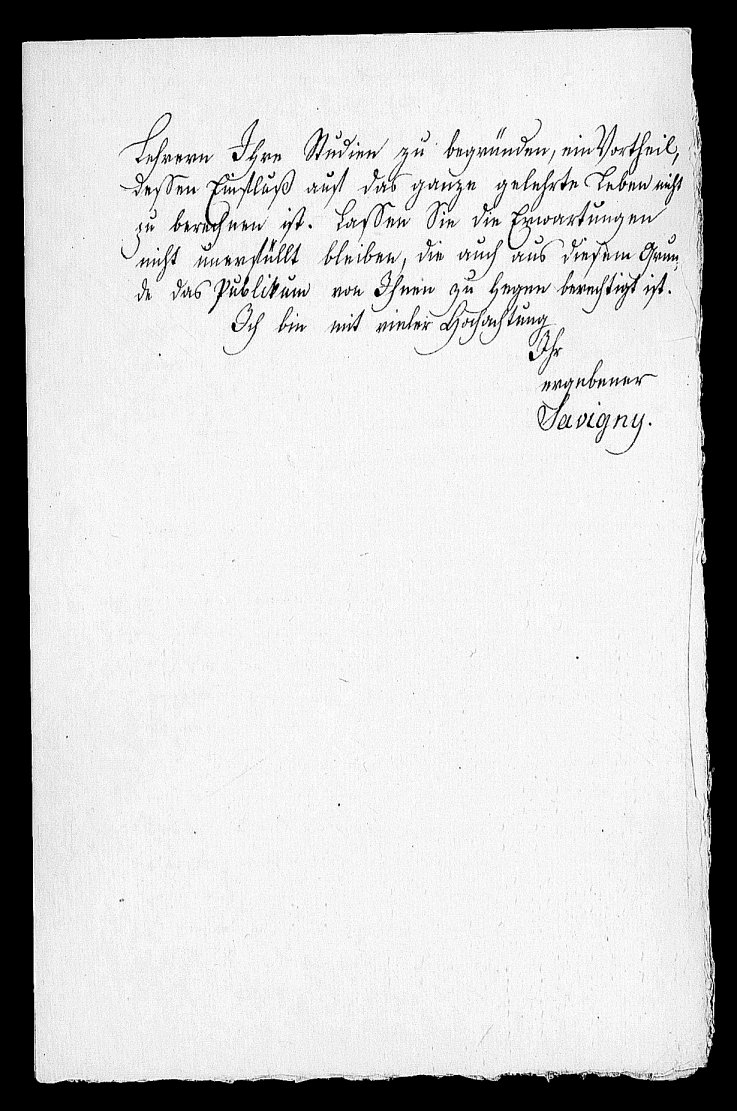 Lehrern Ihre Studien zu begründen, ein Vortheil,
dessen Einfluß auf das ganze gelehrte Leben nicht
zu berechnen ist. Lassen Sie die Erwartungen
nicht unerfüllt bleiben, die auch aus diesem Grun-
de das Publikum von Ihnen zu hegen berechtigt ist.
Ich bin mit vieler Hochachtung
Ihr
ergebener
Savigny.